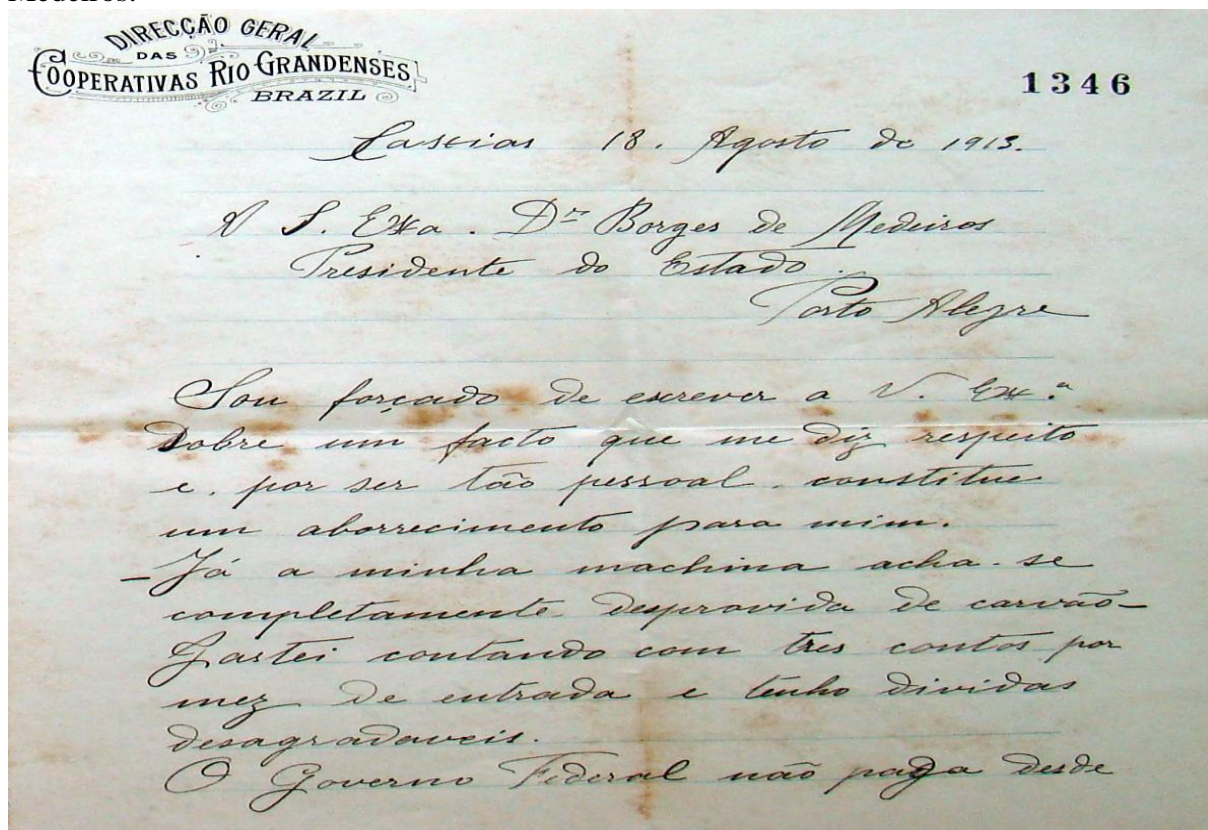 Medeiros.
DIRECÇÃO GERAL
DAS
COOPERATIVAS RIO GRANDENSES
BRAZIL
1346
Caxias 18. Agosto de 1913.
A S. Exa. Dr Borges de Medeiros
Presidente do Estado.
Porto Alegre
Sou forçado de escrever a V. Exa.
sobre um facto que me diz respeito
e, por ser tão pessoal, constitue
um aborrecimento para mim.
- Já a minha machina acha-se
completamente desprovida de carvão-
Gastei contando com tres contos por
mez de entrada e tenho dividas
desagradaveis.
O Governo Federal não paga desde